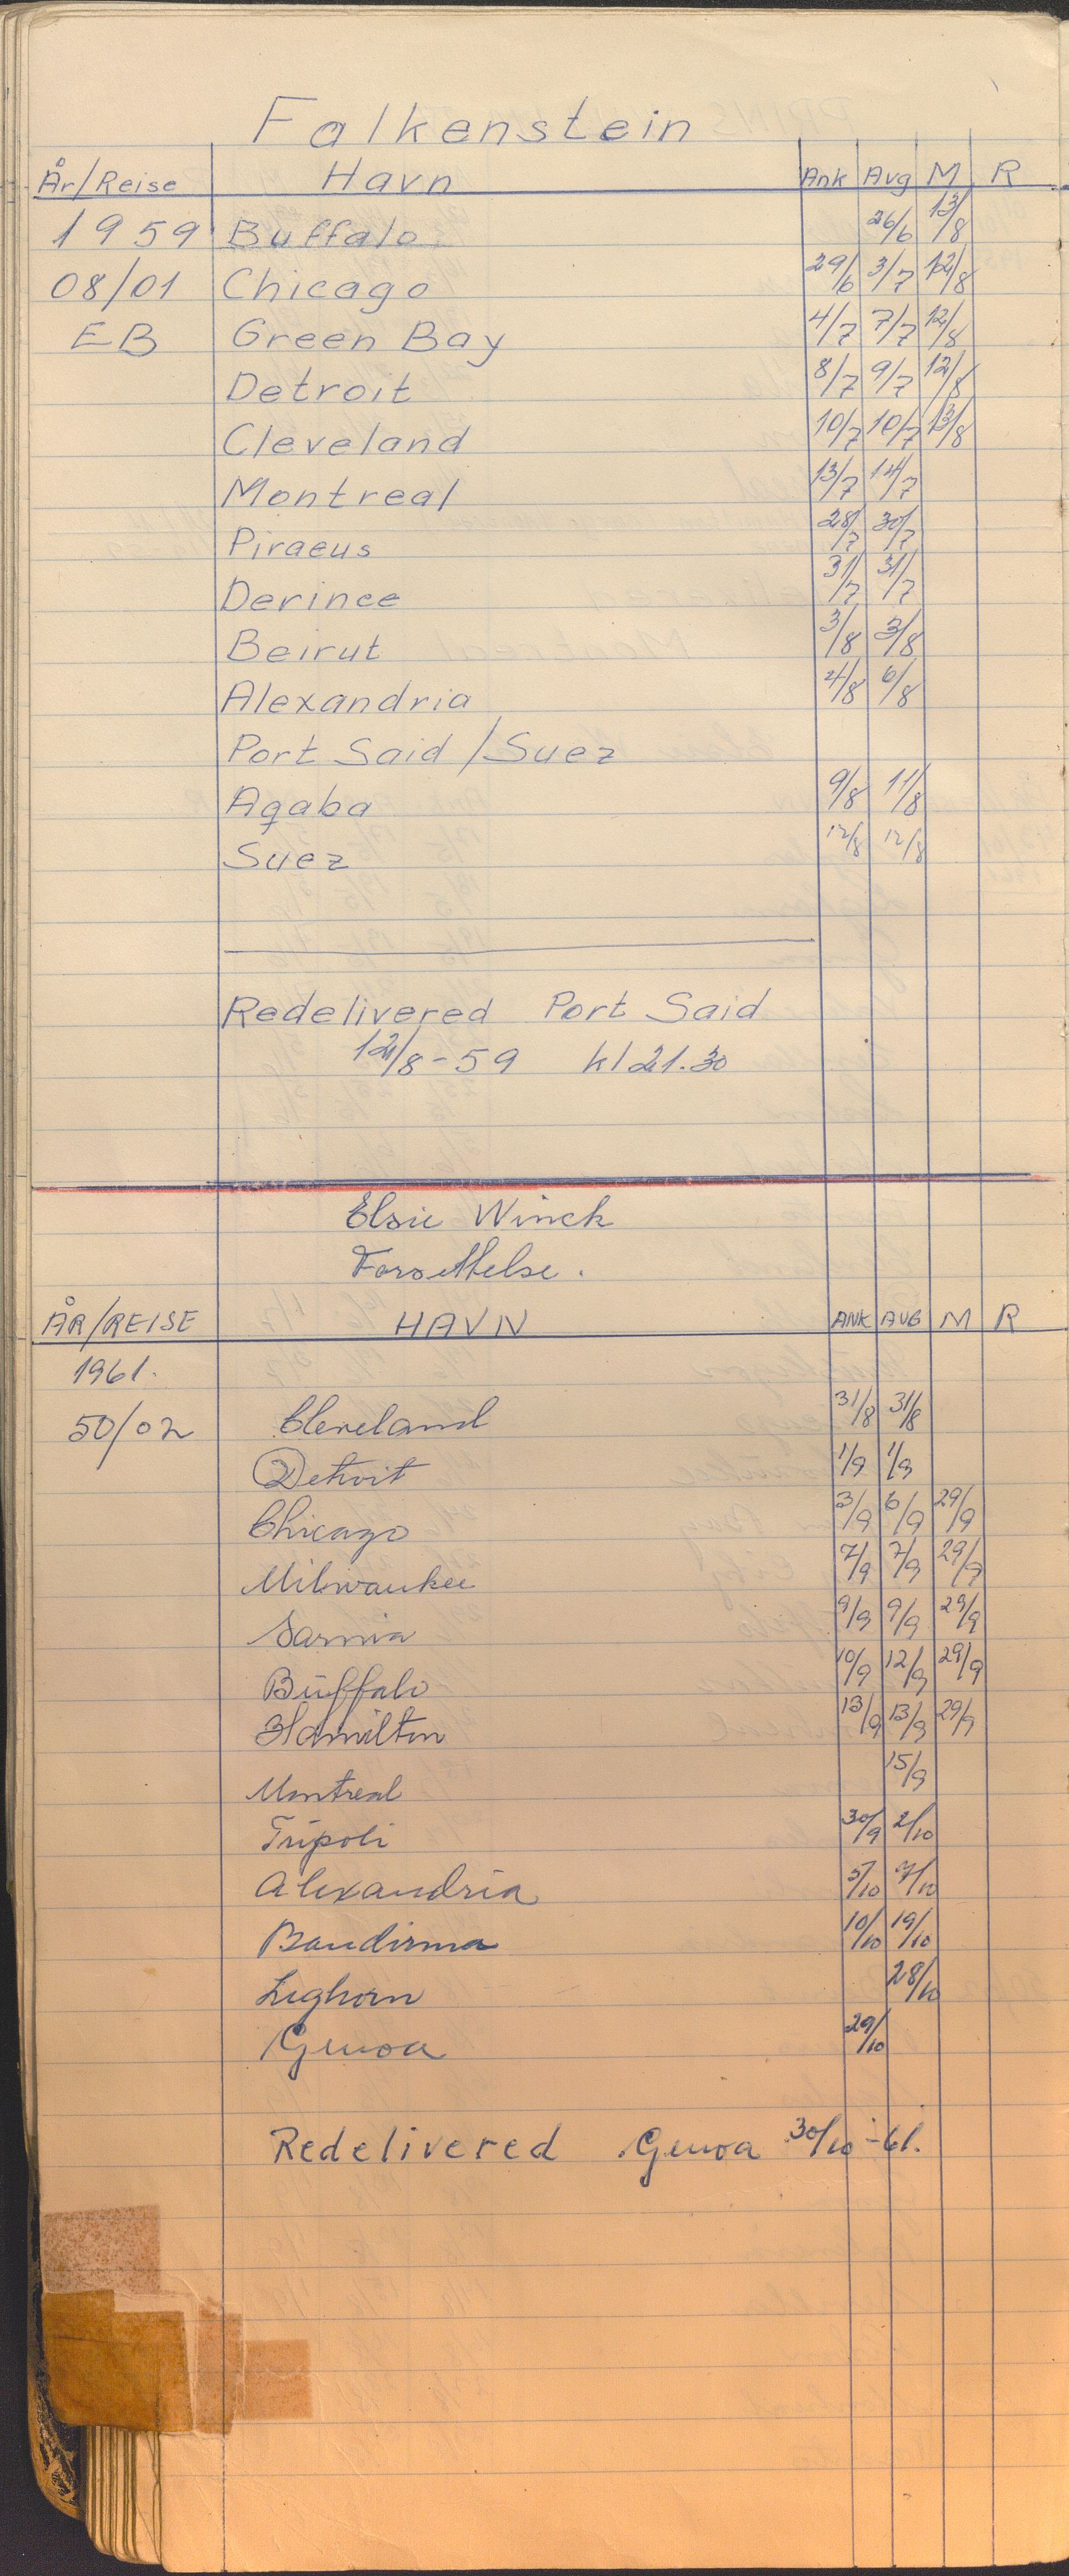 Falkenstein
År/Reise Havn Ank Avg M R
1959 Buffalo 26/6 13/8
08/01 Chicago 29/6 3/7 12/8
EB Green Bay 4/7 7/7 12/8
Detroit 8/7 9/7 12/8
Cleveland 10/7 10/7 13/8
Montreal 13/7 14/7
Piraeus 28/7 30/7
Derince 31/7 31/7
Beirut 3/8 3/8
Alexandria 4/8 6/8
Port Said/Suez
Aqaba 9/8 11/8
Suez 12/8 12/8
Redelivered Port Said
12/8-59 kl 21.30
Elsie Winck
Forsettelse.
ÅR/REISE HAVN ANK AVG M R
1961.
50/02 Cleveland 31/8 31/8
Detroit 1/9 1/9
Chicago 3/9 6/9 29/9
Milwaukee 7/9 7/9 29/9
Sarnia 9/9 9/9 29/9
Buffalo 10/9 12/9 29/9
Hamilton 13/9 13/9 29/9
Montreal 15/9
Tripoli 30/9 2/10
Alexandria 5/10 7/10
Bandirma 10/10 19/10
Leghorn 28/10
Genoa 29/10
Redelivered Genoa 30/10-61.